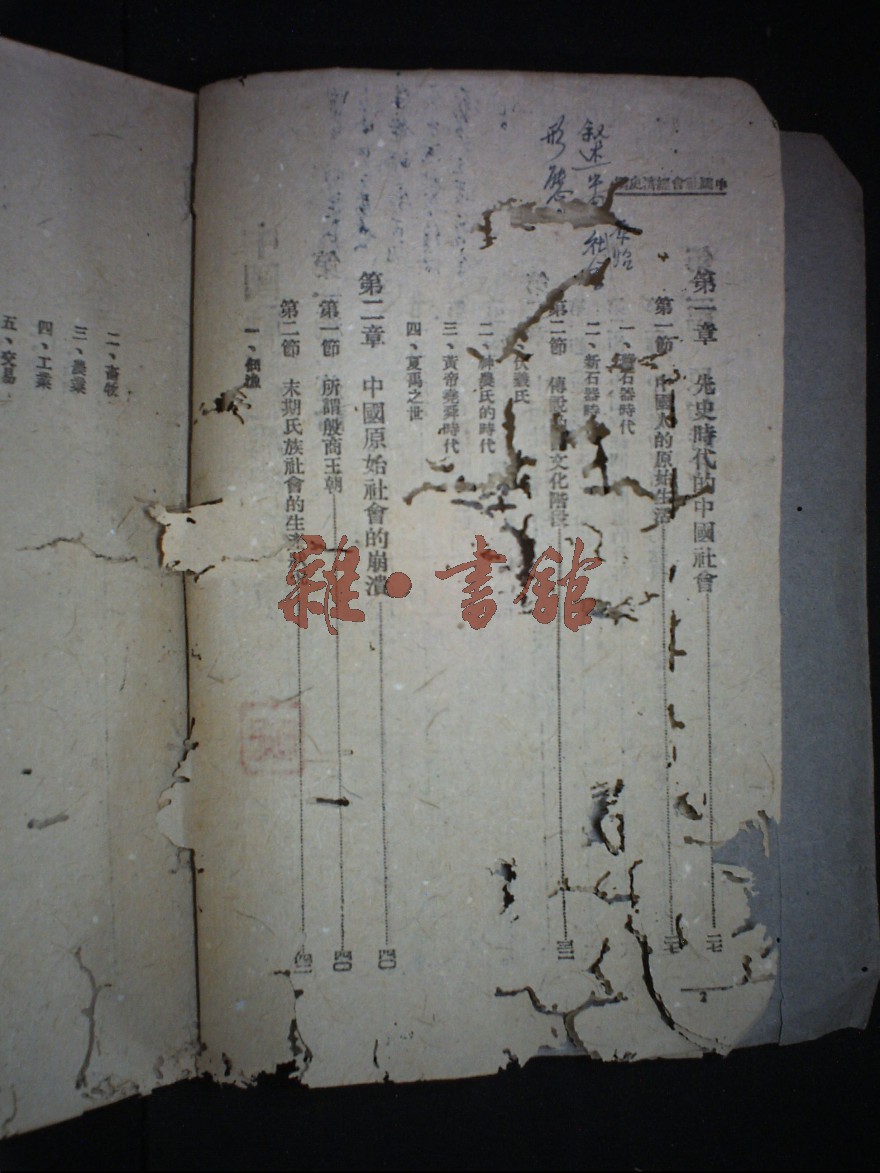 中國社會經濟史綱
叙述
形
第一章 先史時代的中國社會 二七
第一節 中國人的原始生活 二七
一、舊石器時代
二、新石器時
第二節 傳說 文化階段 三二
伏羲氏
二、神農氏的時代
三、黃帝堯舜時代
四、夏禹之世
第二章 中國原始社會的崩潰 四〇
第一節 所謂殷商王朝 四〇
第二節 末期氏族社會的生 四二
一、佃漁
2
二、畜牧
三、農業
四、工業
五、交易
雜·書館